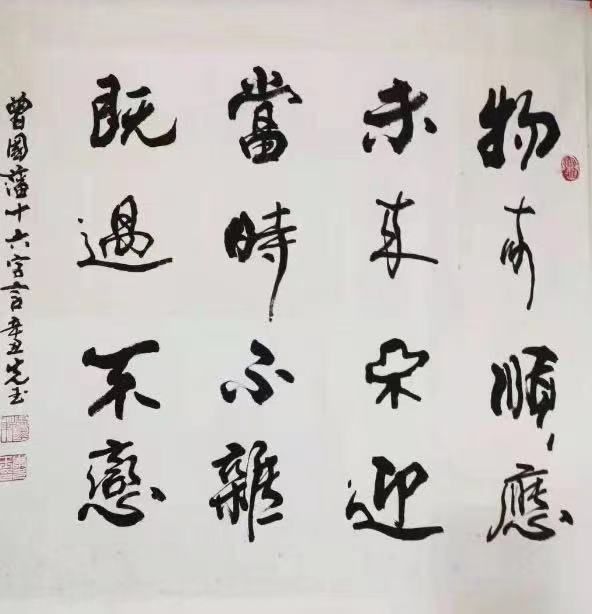 物来順應
未来不迎
當時不雜
既過不戀
曾國藩十六字言辛丑先玉